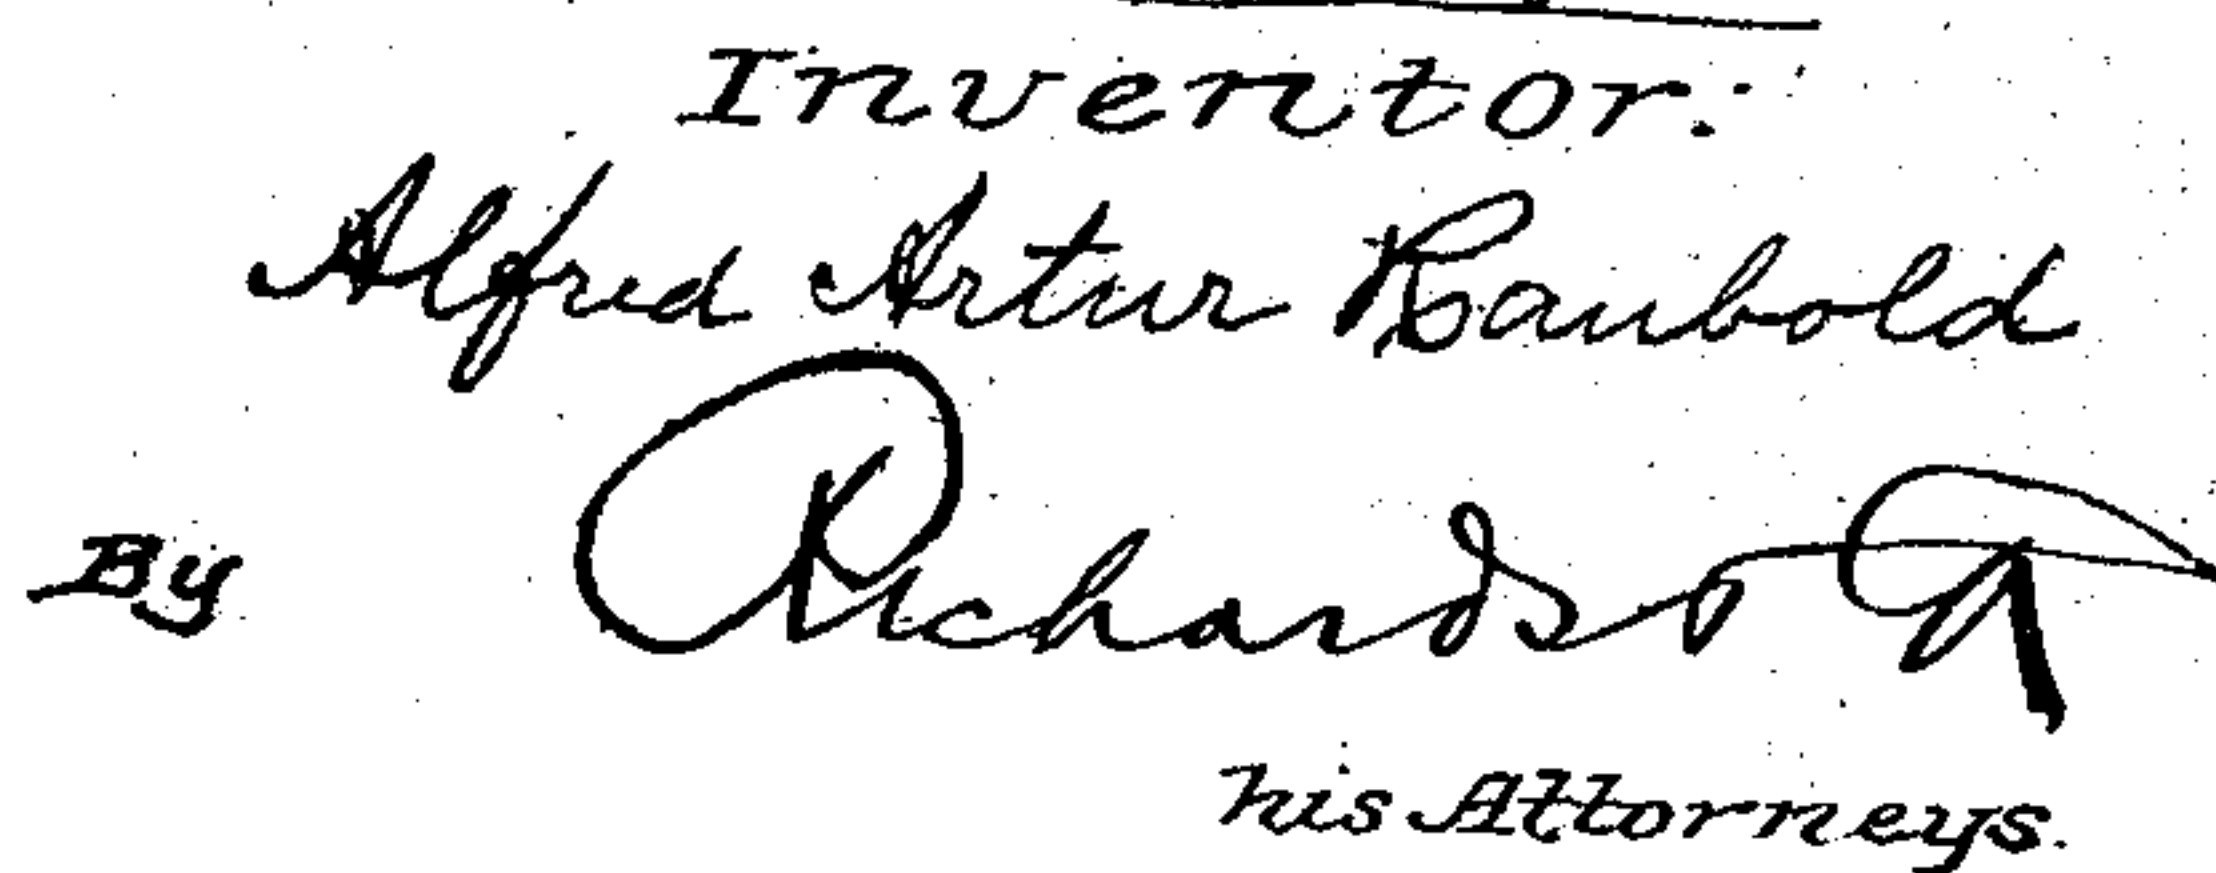 Inventor:
Alfred Artur Raubold
By Richards
his Attorneys.